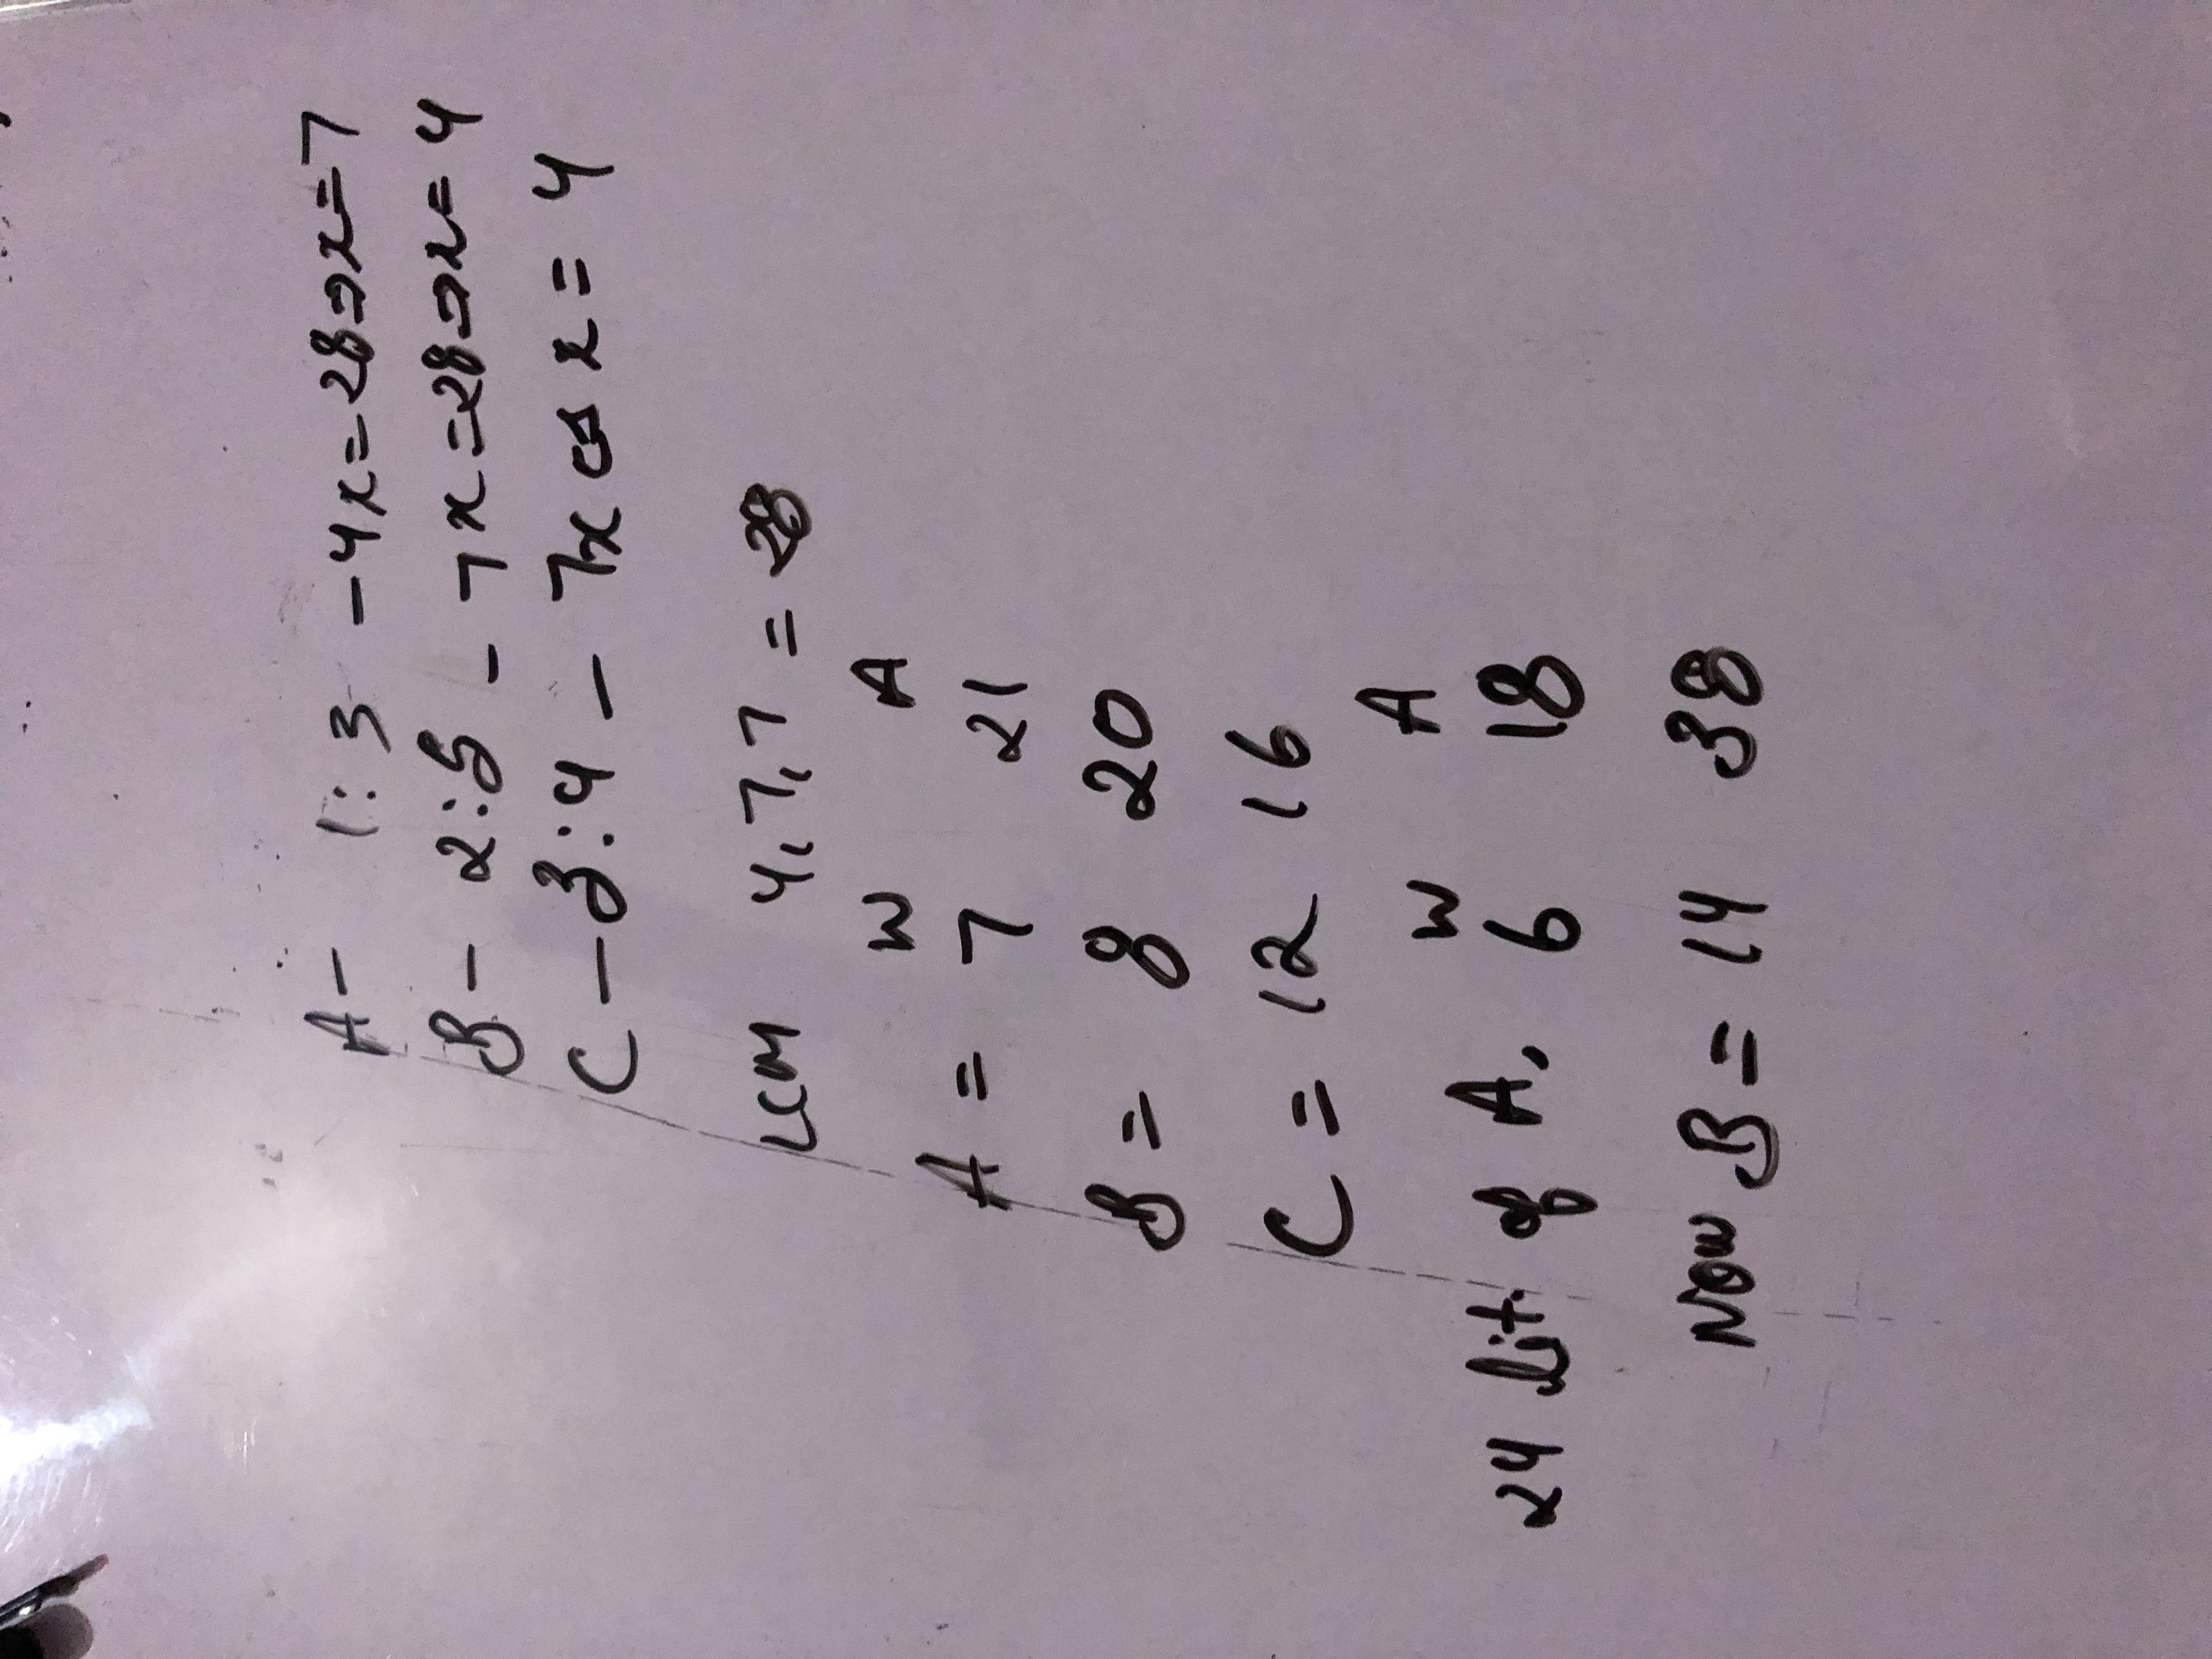 A- 1:3 -4x=28⇒x=7
B- 2:5 - 7x=28⇒x=4
C-3:4 - 7x x=4
LCM 4,7,7 = 28
W A
A = 7 21
B = 8 20
C = 12 16
W A
24 lit. of A, 6 18
Now B = 14 38